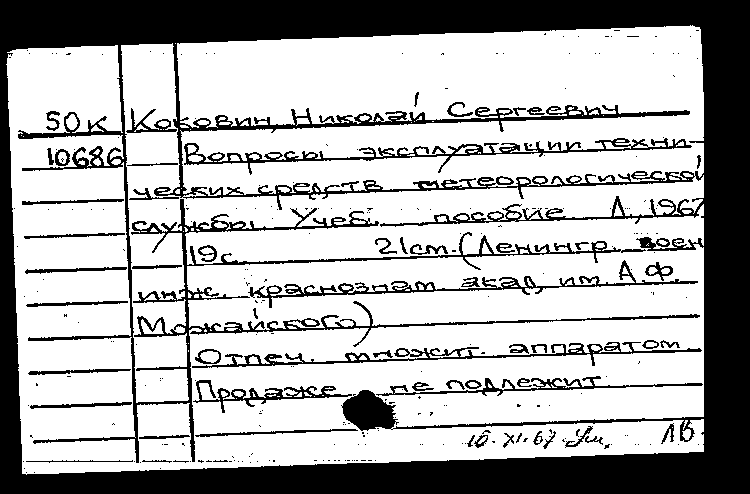 50к Коковин, Николай Сергеевич
10686 Вопросы эксплуатации техни-
ческих средств метеорологической
службы. Учеб. пособие Л., 1967
19с. 21см. (Ленингр. воен.
инж. краснознам. акад. им. А.Ф.
Можайского)
Отпеч. множит. аппаратом
Продаже не подлежит
10.XI.67. ЛВ.